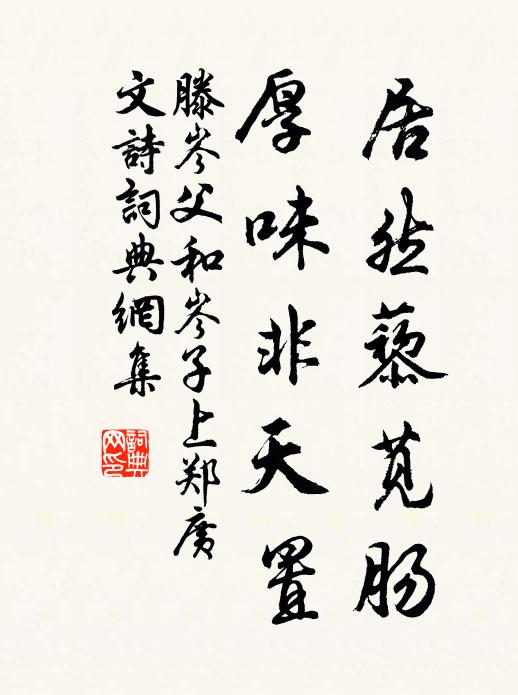 居然藜苋肠
厚味非天置
滕岑父和岑子上郑广
文詩詞典網集
詞典网印